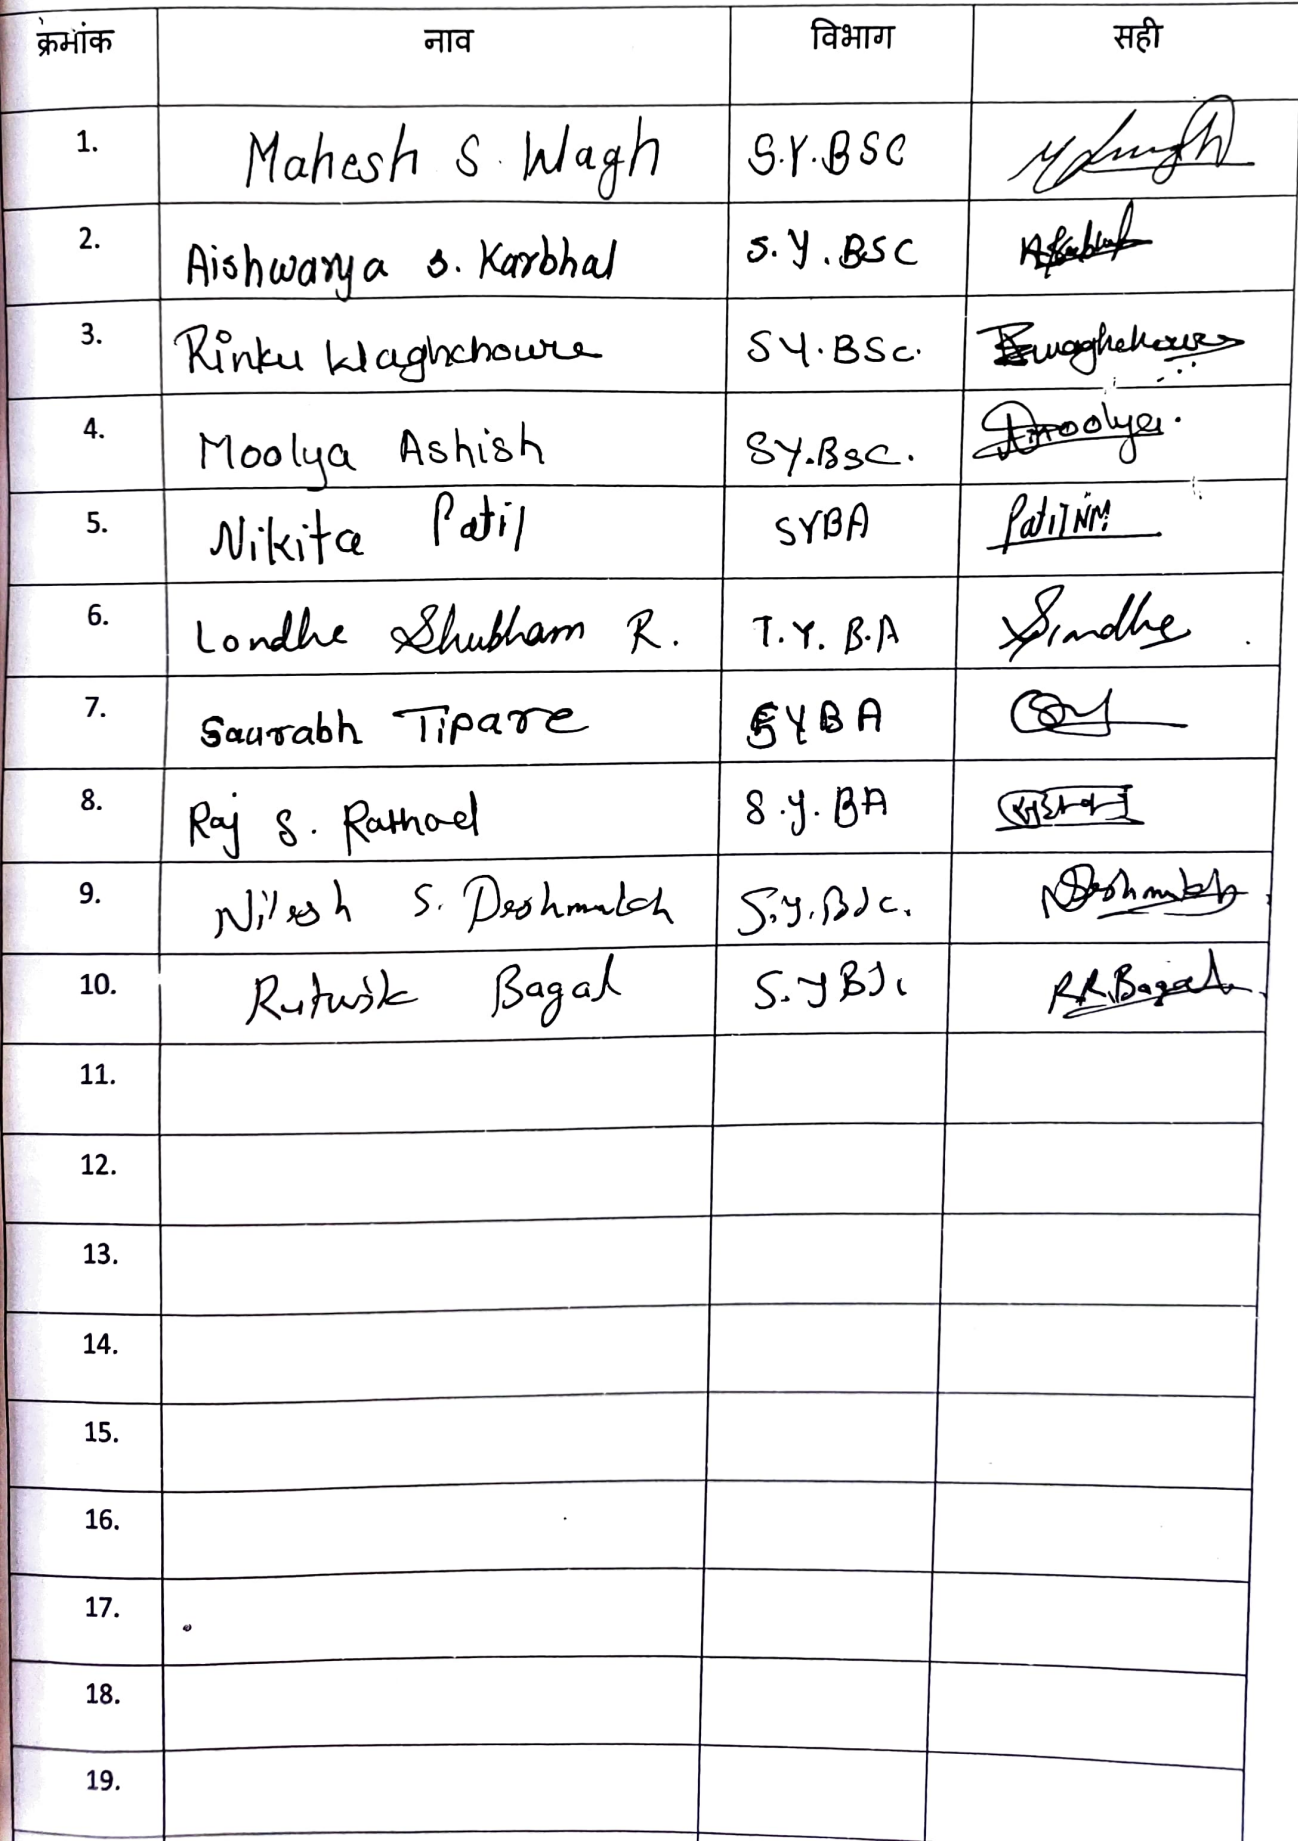 क्रमांक नाव विभाग सही
1. Mahesh S. Wagh S.Y.BSC
2. Aishwarya S. Karbhal S.Y.BSC
3. Rinku Waghchoure SY.BSc. Rwaghchoure
4. Moolya Ashish SY.BSC. Amoolya.
5. Nikita Patil SYBA Patil NM
6. Londhe Shubham R. T.Y. B.A
7. Saurabh Tipare SYBA
8. Raj S. Rathod S.Y. BA
9. Nilesh S. Deshmukh S.Y.BSc. NDeshmukh
10. Rutwik Bagal S.YBSc R.R.Bagal
11.
12.
13.
14.
15.
16.
17.
18.
19.